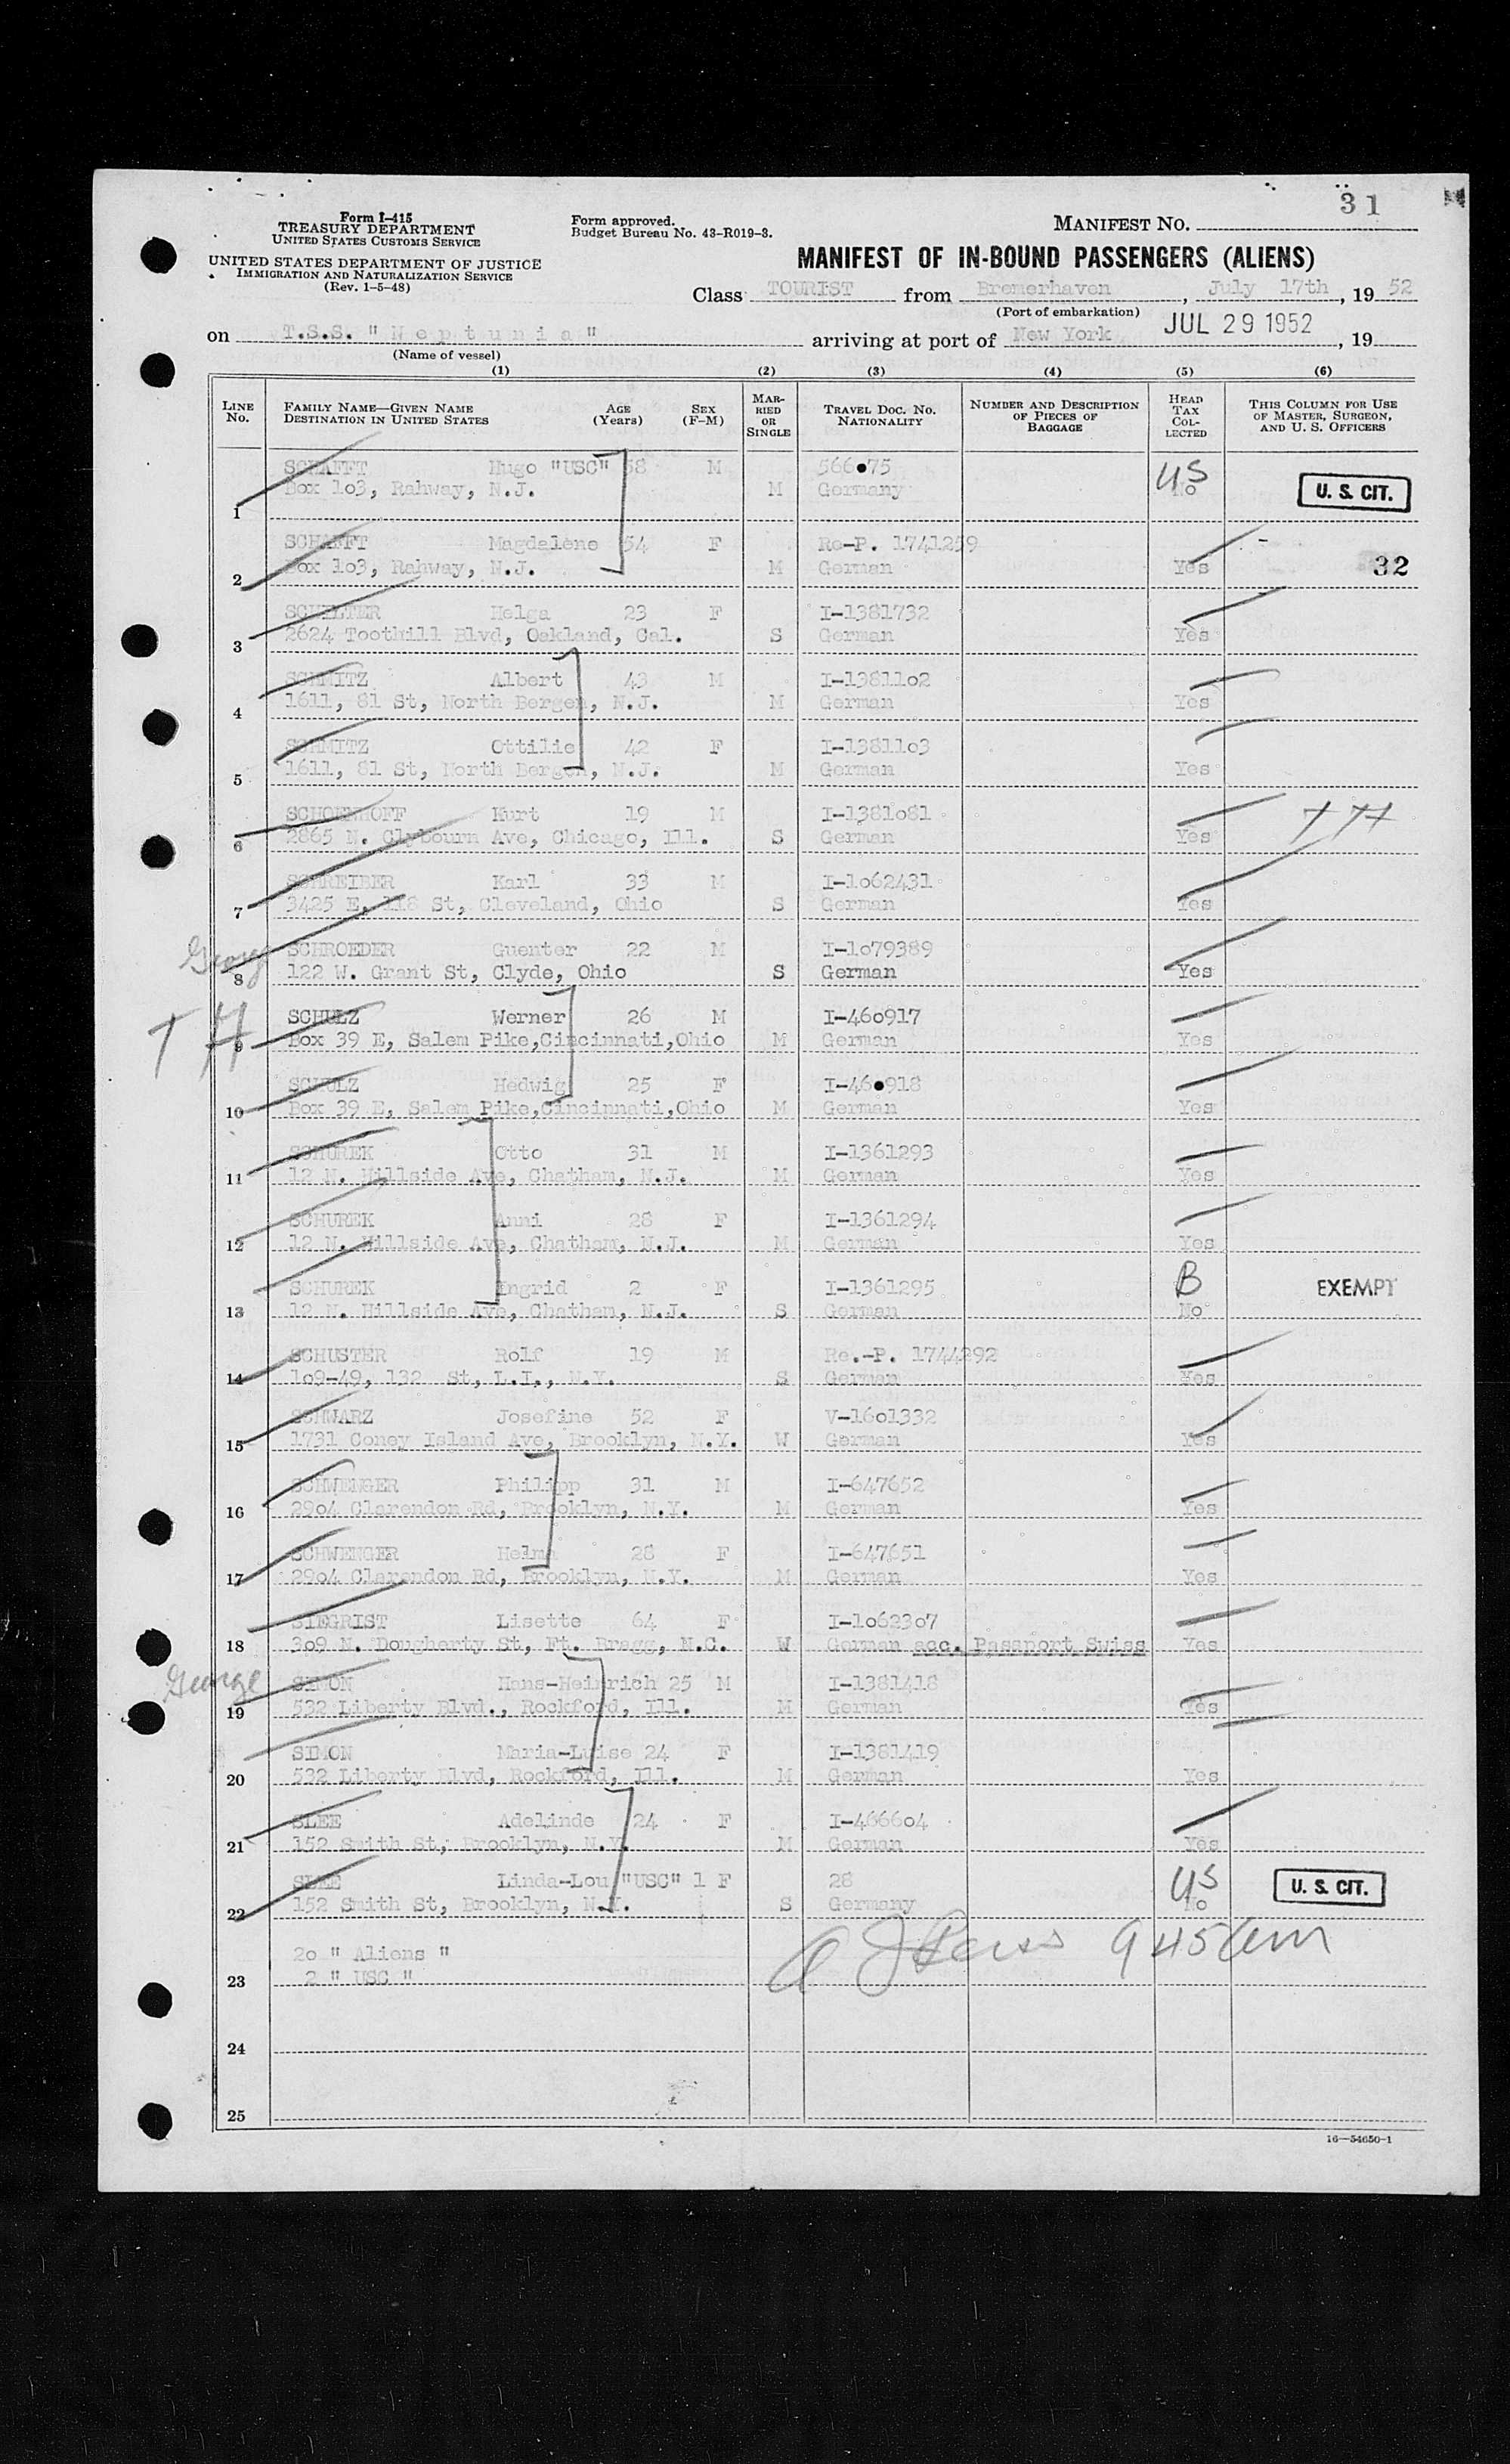 31
Form I-415
TREASURY DEPARTMENT
UNITED STATES CUSTOMS SERVICE
UNITED STATES DEPARTMENT OF JUSTICE
IMMIGRATION AND NATURALIZATION SERVICE
(Rev. 1-5-48)
Form approved.
Budget Bureau No. 43-R019-3.
MANIFEST NO.
MANIFEST OF IN-BOUND PASSENGERS (ALIENS)
Class TOURIST from Bremerhaven, July 17th, 19 52
(Port of embarkation)
on T.S.S. "Neptunia" arriving at port of New York JUL 29 1952, 19
(Name of vessel)
(1) (2) (3) (4) (5) (6)
LINE NO. FAMILY NAME—GIVEN NAME DESTINATION IN UNITED STATES AGE (Years) SEX (F-M) MARRIED OR SINGLE TRAVEL DOC. NO. NATIONALITY NUMBER AND DESCRIPTION OF PIECES OF BAGGAGE HEAD TAX COLLECTED THIS COLUMN FOR USE OF MASTER, SURGEON, AND U. S. OFFICERS
SCHAFFT Hugo "USC" 58 M 566•75 US
1 Box 1o3, Rahway, N.J. M Germany No U. S. CIT.
SCHAFFT Magdalene 54 F Re-P. 1741259
2 Box 1o3, Rahway, N.J. M German Yes 32
SCHELTER Helga 23 F I-1381732
3 2624 Toothill Blvd, Oakland, Cal. S German Yes
SCHMITZ Albert 43 M I-13811o2
4 1611, 81 St, North Bergen, N.J. M German Yes
SCHMITZ Ottilie 42 F I-13811o3
5 1611, 81 St, North Bergen, N.J. M German Yes
SCHOENHOFF Kurt 19 M I-1381o81
6 2865 N. Clybourn Ave, Chicago, Ill. S German Yes
SCHREIBER Karl 33 M I-1o62431
7 3425 E, 118 St, Cleveland, Ohio S German Yes
SCHROEDER Guenter 22 M I-1o79389
Georg 8 122 W. Grant St, Clyde, Ohio S German Yes
SCHULZ Werner 26 M I-46o917
9 Box 39 E, Salem Pike,Cincinnati,Ohio M German Yes
SCHULZ Hedwig 25 F I-46•918
10 Box 39 E, Salem Pike,Cincinnati,Ohio M German Yes
SCHUREK Otto 31 M I-1361293
11 12 N. Hillside Ave, Chatham, N.J. M German Yes
SCHUREK Anni 28 F I-1361294
12 12 N. Hillside Ave, Chatham, N.J. M German Yes
SCHUREK Ingrid 2 F I-1361295 B EXEMPT
13 12 N. Hillside Ave, Chatham, N.J. S German No
SCHUSTER Rolf 19 M Re.-P. 1744292
14 1o9-49, 132 St, L.I., N.Y. S German Yes
SCHWARZ Josefine 52 F V-16o1332
15 1731 Coney Island Ave, Brooklyn, N.Y. W German Yes
SCHWENGER Philipp 31 M I-647652
16 29o4 Clarendon Rd, Brooklyn, N.Y. M German Yes
SCHWENGER Helma 28 F I-647651
17 29o4 Clarendon Rd, Brooklyn, N.Y. M German Yes
SIEGRIST Lisette 64 F I-1o623o7
18 3o9 N. Dougherty St, Ft. Bragg, N.C. W German acc. Passport Swiss Yes
George SIMON Hans-Heinrich 25 M I-1381418
19 532 Liberty Blvd., Rockford, Ill. M German Yes
SIMON Maria-Luise 24 F I-1381419
20 532 Liberty Blvd, Rockford, Ill. M German Yes
SLEE Adelinde 24 F I-4666o4
21 152 Smith St, Brooklyn, N.Y. M German Yes
SLEE Linda-Lou "USC" 1 F 28 US
22 152 Smith St, Brooklyn, N.Y. S Germany No U. S. CIT.
2o " Aliens "
23 2 " USC "
945 am
24
25
16—54650-1